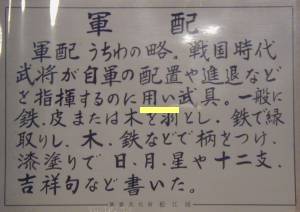 軍配
軍配うちわの略。戦国時代
武将が自軍の配置や進退など
を指揮するのに用い武具。一般に
鉄、皮または木を羽とし、鉄で縁
取りし、木、鉄などで柄をつけ、
漆塗りで日、月、星や十二支、
吉祥句など書いた。